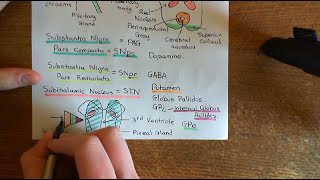 chiasma
Pituitary
Gland
body
Red
Nucleus
Periaqueductal
Gray
Cerebral
aqueduct
Superior
Colliculi
Substantia Nigra = PAG
Pars Compacta = SNpc Dopamine.
Substantia Nigra = SNpr GABA
Pars Reticulata
Subthalamic Nucleus = STN
Putamen
Globus Pallidus
GPi - Internal Globus
Pallidus
GPe
3rd Ventricle
Pineal Gland